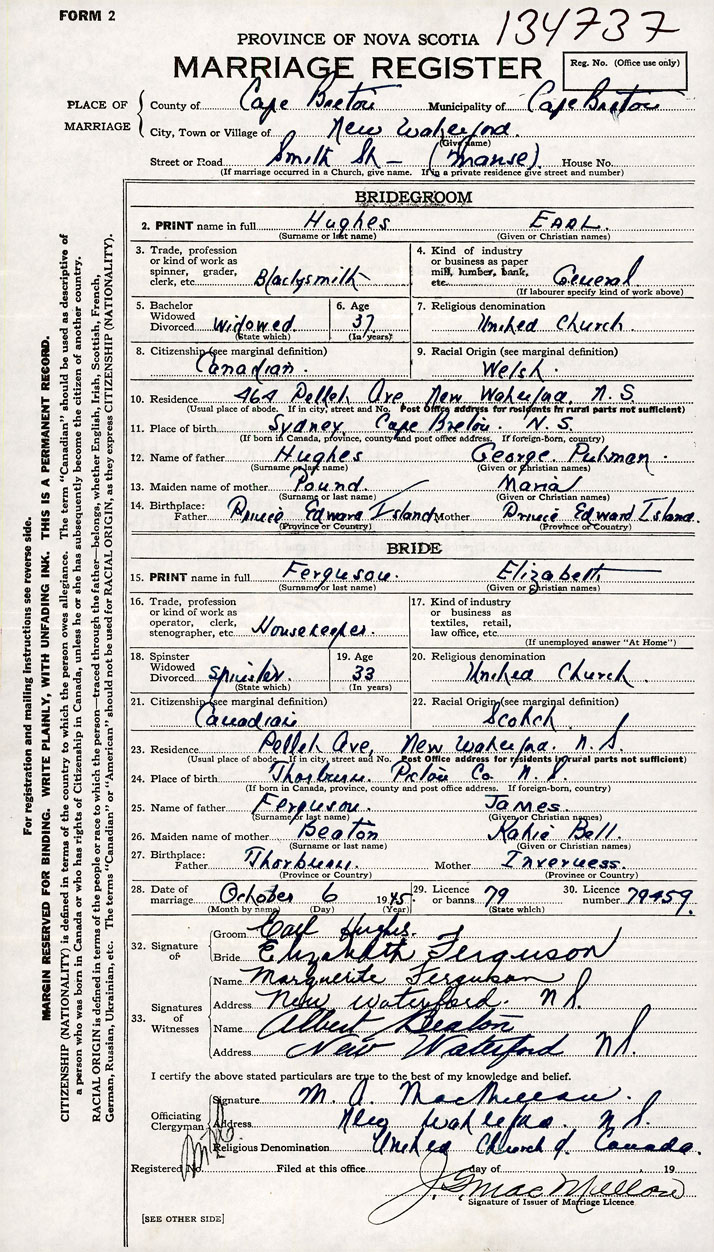 FORM 2
134737
PROVINCE OF NOVA SCOTIA
MARRIAGE REGISTER
Reg. No. (Office use only)
PLACE OF MARRIAGE
County of Cape Breton Municipality of Cape Breton
City, Town or Village of New Waterford
(Give name)
Street or Road Smith St — (Manse). House No.
(If marriage occurred in a Church, give name. If in a private residence give street and number)
BRIDEGROOM
2. PRINT name in full Hughes Earl
(Surname or last name) (Given or Christian names)
3. Trade, profession or kind of work as spinner, grader, clerk, etc. Blacksmith
4. Kind of industry or business as paper mill, lumber, bank, etc. General
(If labourer specify kind of work above)
5. Bachelor Widowed Divorced Widowed
(State which)
6. Age 37
(In years)
7. Religious denomination United Church
8. Citizenship (see marginal definition) Canadian.
9. Racial Origin (see marginal definition) Welsh.
10. Residence 464 Pellet Ave, New Waterford, N.S.
(Usual place of abode. If in city, street and No. Post Office address for residents in rural parts not sufficient)
11. Place of birth Sydney, Cape Breton. N.S.
(If born in Canada, province, county and post office address. If foreign-born, country)
12. Name of father Hughes George Putman.
(Surname or last name) (Given or Christian names)
13. Maiden name of mother Pound. Maria
(Surname or last name) (Given or Christian names)
14. Birthplace: Father Prince Edward Island Mother Prince Edward Island.
(Province or Country) (Province or Country)
BRIDE
15. PRINT name in full Ferguson. Elizabeth
(Surname or last name) (Given or Christian names)
16. Trade, profession or kind of work as operator, clerk, stenographer, etc. Housekeeper.
17. Kind of industry or business as textiles, retail, law office, etc.
(If unemployed answer "At Home")
18. Spinster Widowed Divorced Spinster.
(State which)
19. Age 33
(In years)
20. Religious denomination United Church
21. Citizenship (see marginal definition) Canadian
22. Racial Origin (see marginal definition) Scotch.
23. Residence Pellet Ave, New Waterford. N.S.
(Usual place of abode. If in city, street and No. Post Office address for residents in rural parts not sufficient)
24. Place of birth Thorburn. Pictou Co. N.S.
(If born in Canada, province, county and post office address. If foreign-born, country)
25. Name of father Ferguson. James.
(Surname or last name) (Given or Christian names)
26. Maiden name of mother Beaton Katie Bell.
(Surname or last name) (Given or Christian names)
27. Birthplace: Father Thorburn. Mother Inverness.
(Province or Country) (Province or Country)
28. Date of marriage October 6 1945.
(Month by name) (Day) (Year)
29. Licence or banns 79
(State which)
30. Licence number 79459.
32. Signature of
Groom Earl Hughes.
Bride Elizabeth Ferguson
33. Signatures of Witnesses
Name Marguerite Ferguson
Address New Waterford. N.S.
Name Albert Beaton
Address New Waterford N.S.
I certify the above stated particulars are true to the best of my knowledge and belief.
Officiating Clergyman
Signature M. A. MacMillan.
Address New Waterford N.S.
Religious Denomination United Church of Canada.
Registered No. Filed at this office day of 19
J. G. MacMillan
Signature of Issuer of Marriage Licence
[SEE OTHER SIDE]
For registration and mailing instructions see reverse side.
MARGIN RESERVED FOR BINDING. WRITE PLAINLY, WITH UNFADING INK. THIS IS A PERMANENT RECORD.
CITIZENSHIP (NATIONALITY) is defined in terms of the country to which the person owes allegiance. The term "Canadian" should be used as descriptive of
a person who was born in Canada or who has rights of Citizenship in Canada, unless he or she has subsequently become the citizen of another country.
RACIAL ORIGIN is defined in terms of the people or race to which the person—traced through the father—belongs, whether English, Irish, Scottish, French,
German, Russian, Ukrainian, etc. The terms "Canadian" or "American" should not be used for RACIAL ORIGIN, as they express CITIZENSHIP (NATIONALITY).